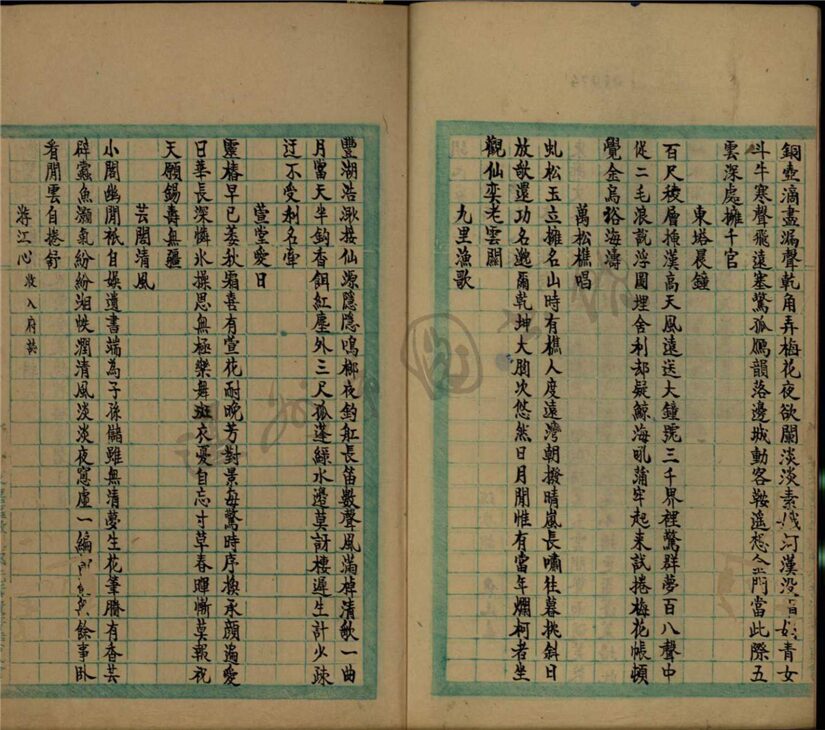 銅壺滴盡漏聲乾角弄梅花夜欲闌淡淡素娥河漢没青女
斗牛寒聲飛遠塞驚孤鴈韻落邊城動客鞍遥想金門當此際五
雲深處擁千官
東塔晨鐘
百尺稜層揷漢高天風遠送大鐘號三千界裡驚群夢百八聲中
促二毛浪説浮圖埋舍利却疑鯨海吼蒲牢起來試捲梅花帳頓
覺金烏裕海濤
萬松樵唱
虬松玉立擁名山時有樵人度遠灣朝撥晴嵐長嘯往暮挑斜日
放歌還功名邈爾乾坤大胸次悠然日月閒惟有當年爛柯者坐
觀仙奕老雲關
九里漁歌
豐湖浩渺接仙源隱隱鳴榔夜釣舡長笛數聲風滿棹清歌一曲
月當天半鈎香餌紅塵外三尺孤蓬緑水邉莫訝棲遲生計少疎
迂不受利名牽
萱堂愛日
靈椿早已萎秋霜喜有萱花耐晩芳對景每驚時序換承顔遍愛
日華長深憐氷操思無極樂舞斑衣憂自忘寸草春暉慚莫報祝
天願錫壽無疆
芸閣清風
小閣幽閒祇自娱遺書端為子孫儲雖無清夢生花筆賸有香芸
辟蠹魚灝氣紛紛湘帙潤清風淡淡夜窓虚一編餘事卧
看閒雲自捲舒
游江心 收入府藝